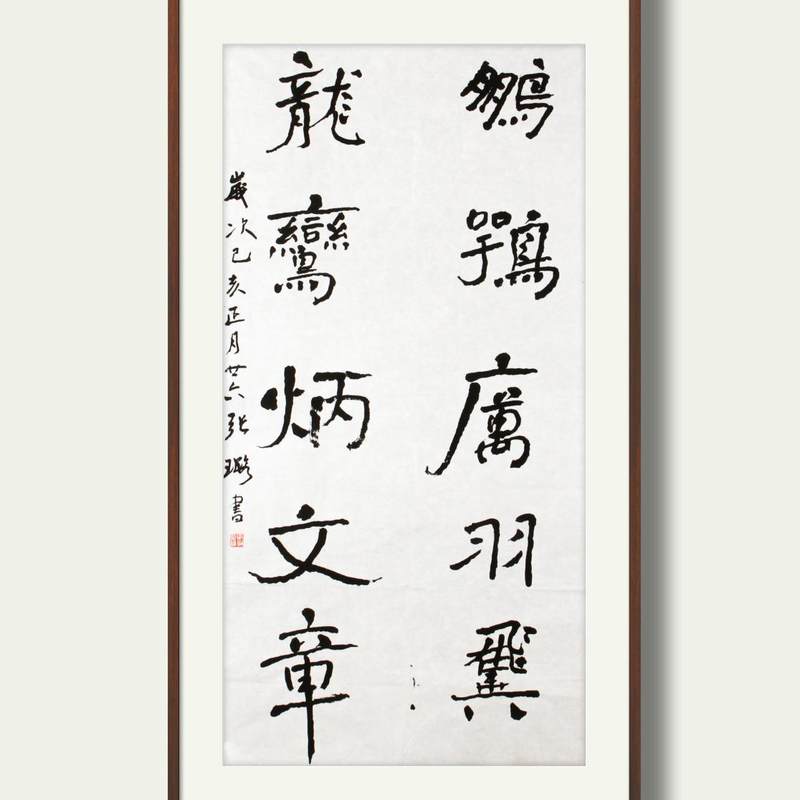 鶵鶚厲羽翼
龍鸞炳文章
歲次己亥正月廿六張璐書